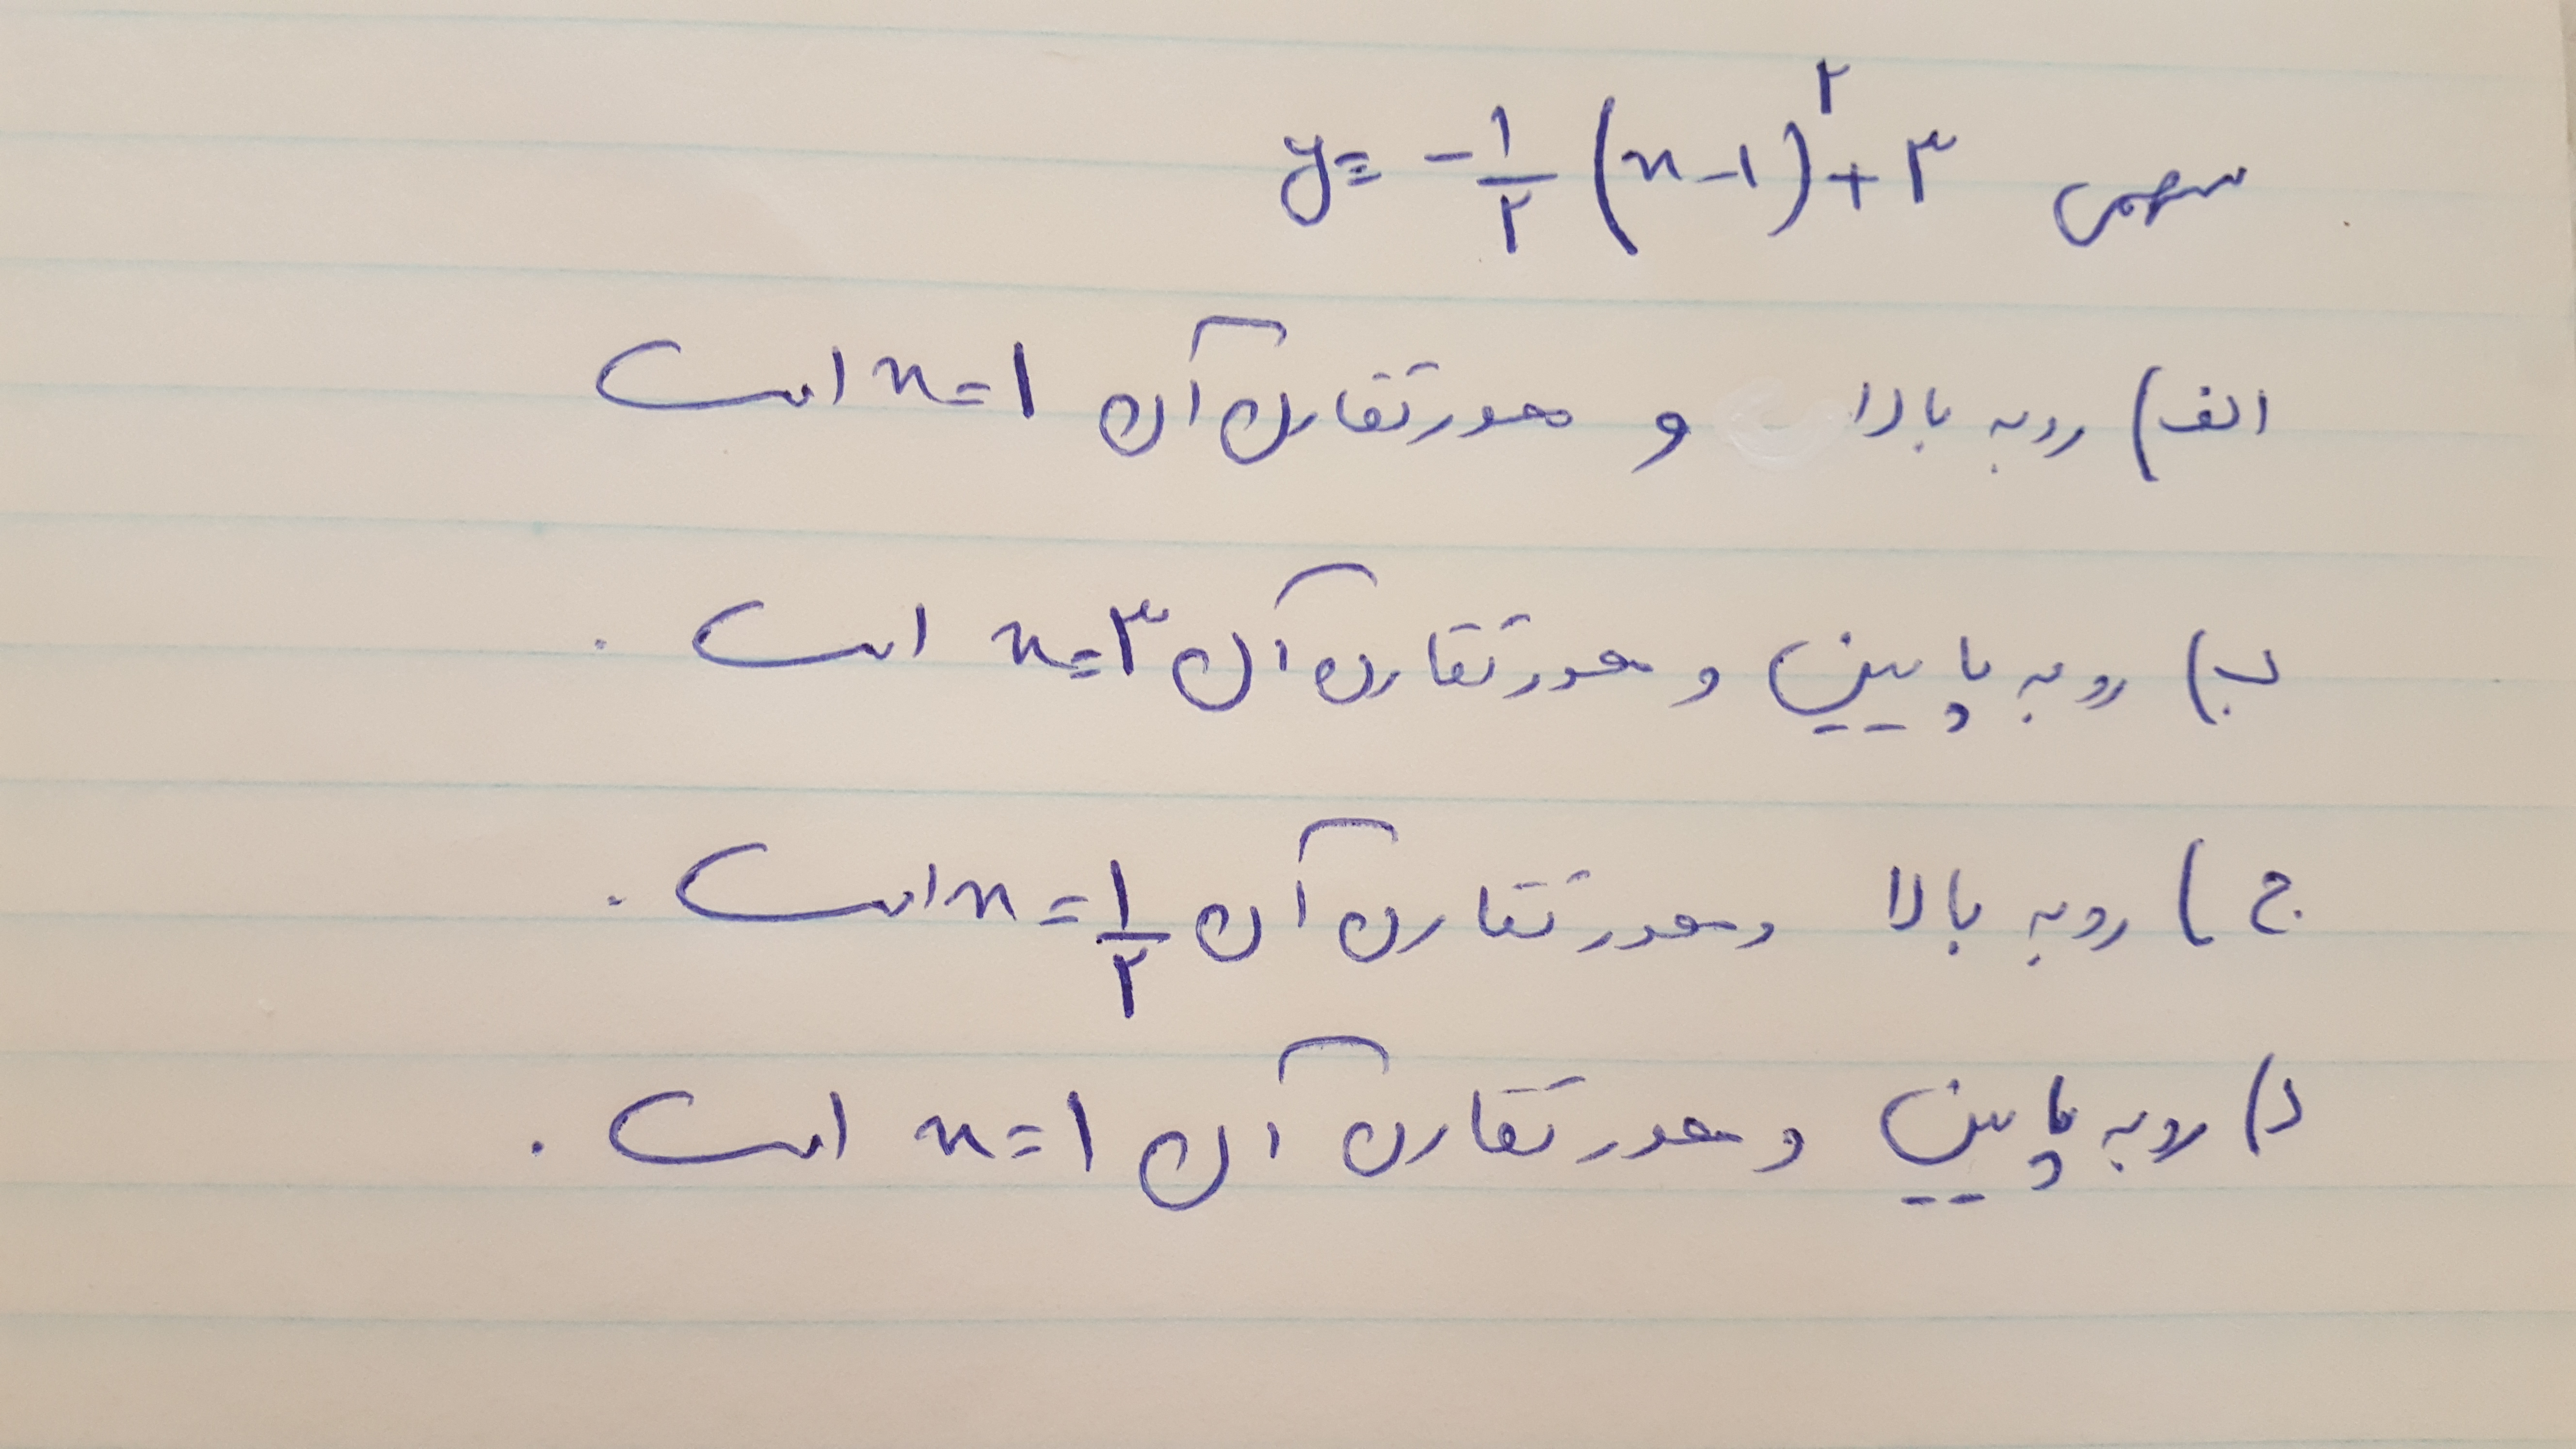 سهمی y = -۱/۲ (x-۱)^۲ + ۳
الف) رو به بالا و محور تقارن آن x=۱ است
ب) رو به پایین و محور تقارن آن x=۳ است .
ج) رو به بالا و محور تقارن آن x=۱/۲ است .
د) رو به پایین و محور تقارن آن x=۱ است .